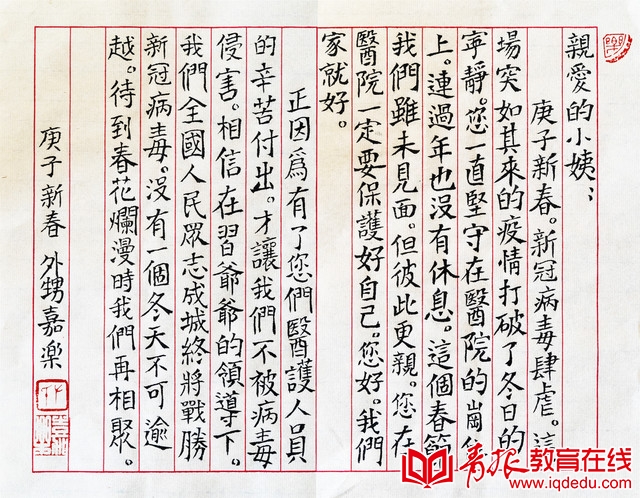 親愛的小姨；
庚子新春。新冠病毒肆虐。這
場突如其來的疫情打破了冬日的
寧靜。您一直堅守在醫院的崗位
上。連過年也沒有休息。這個春節
我們雖未見面。但彼此更親。您在
醫院一定要保護好自己。您好。我們
家就好。
正因爲有了您們醫護人員
的辛苦付出。才讓我們不被病毒
侵害。相信在習爺爺的領導下。
我們全國人民眾志成城終將戰勝
新冠病毒。沒有一個冬天不可逾
越。待到春花爛漫時我們再相聚。
庚子新春 外甥嘉楽
青报教育在线
www.iqdedu.com